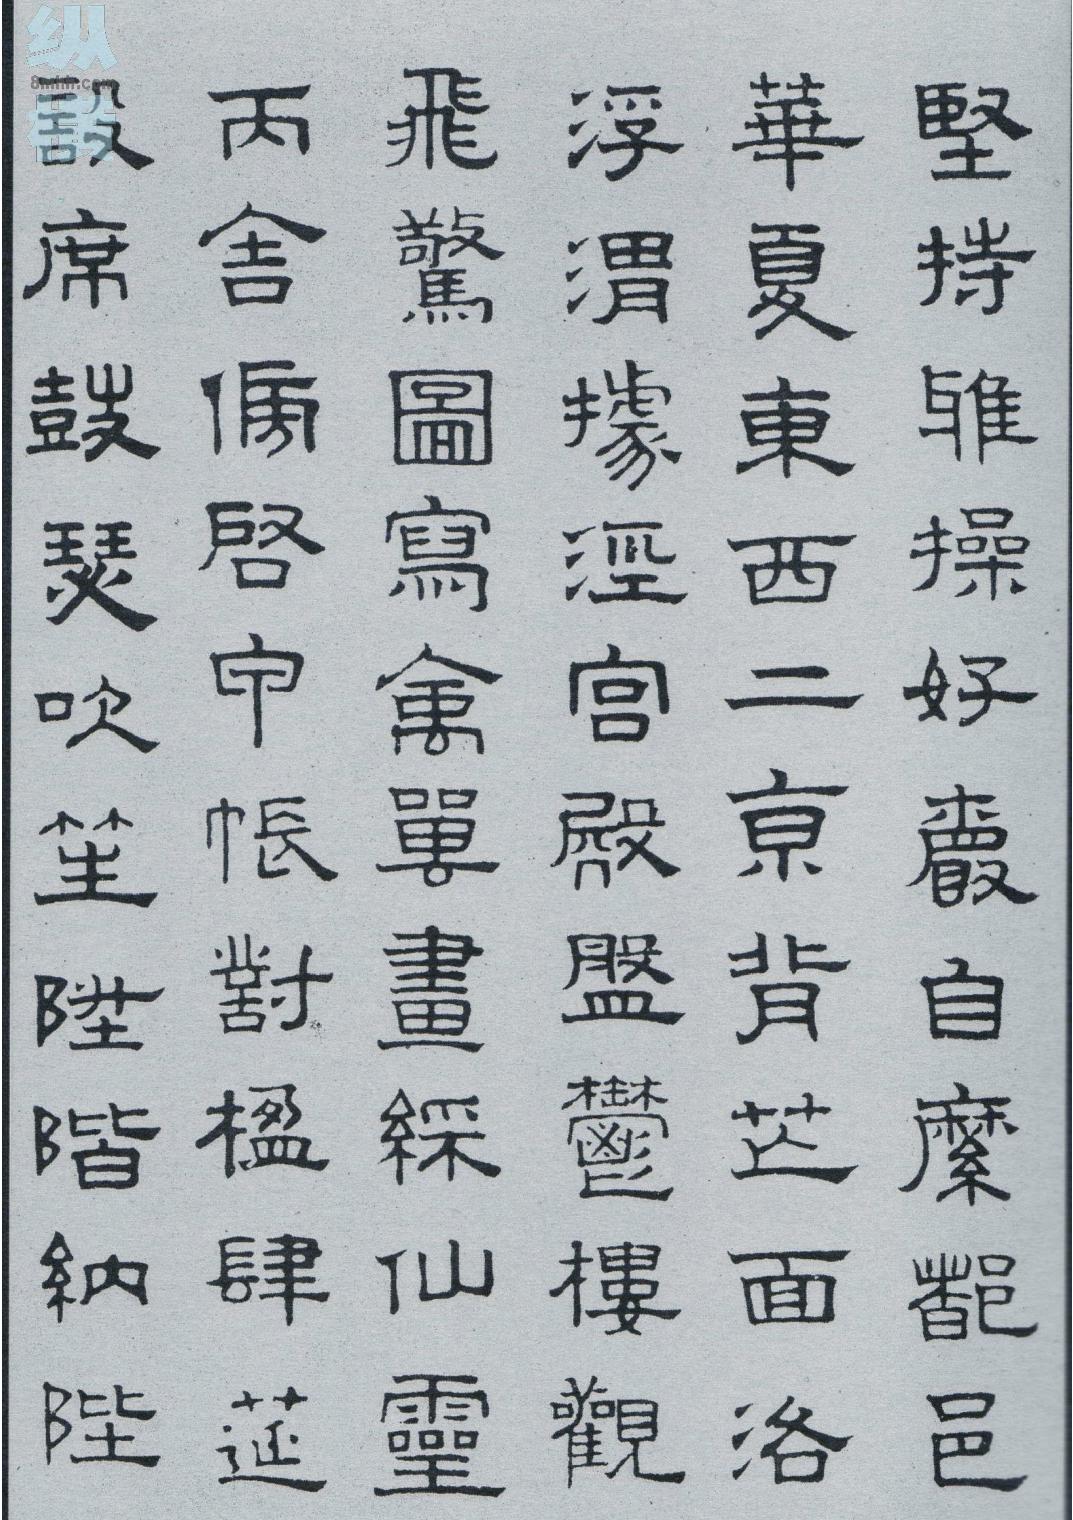 堅持雅操好爵自縻都邑
華夏東西二京背芒面洛
浮渭據涇宮殿盤鬱樓觀
飛驚圖寫禽獸畫綵仙靈
丙舍傍啓甲帳對楹肆筵
設席鼓瑟吹笙陞階納陛
纵
8mhh.com